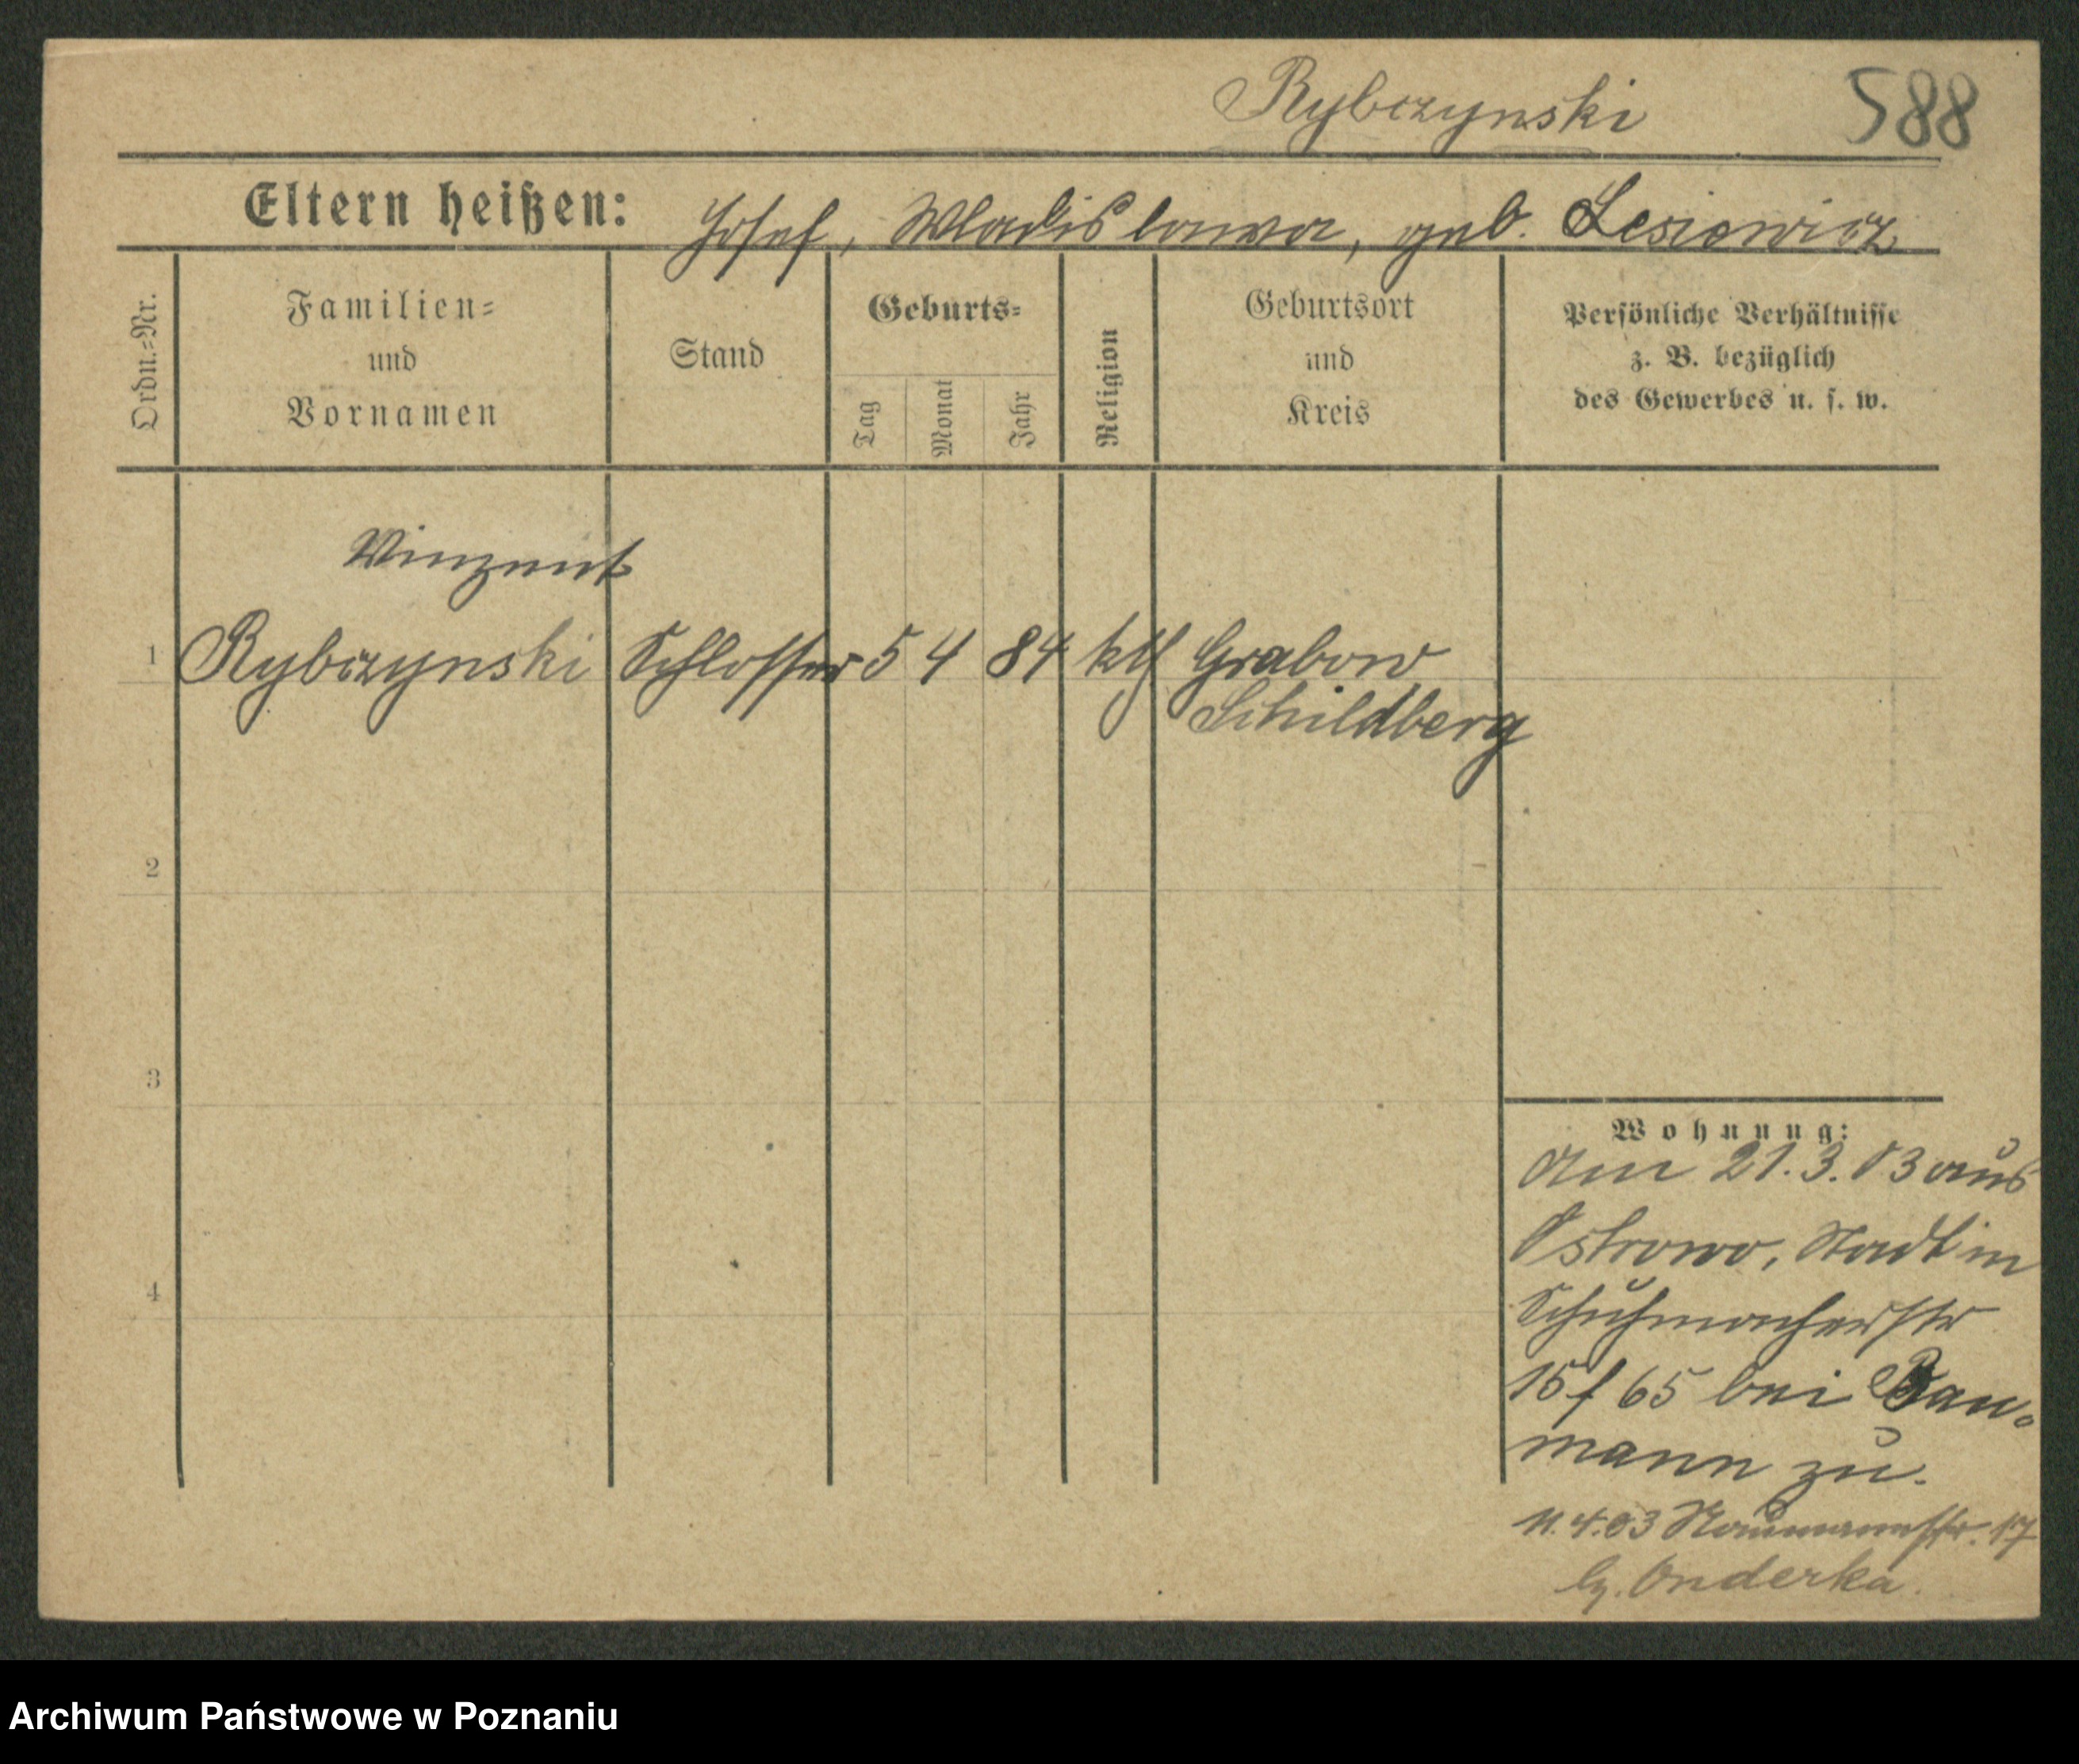 Rybczynski 588
Eltern heißen: Josef, Wladislawa, geb. Lesiewicz
Ordn.=Nr.
Familien=
und
Vornamen
Stand
Geburts=
Tag
Monat
Jahr
Religion
Geburtsort
und
Kreis
Persönliche Verhältnisse
z. B. bezüglich
des Gewerbes u. s. w.
Winzent
1 Rybczynski Schlosser 5 4 84 kth Grabow
Schildberg
2
3
4
Wohnung:
Am 21.3.03 aus
Ostrowo, Stadt in
Schuhmacherstr
15/65 bei Bau-
mann zu.
11.4.03 Naumannstr. 17
b/. Onderka.
Archiwum Państwowe w Poznaniu